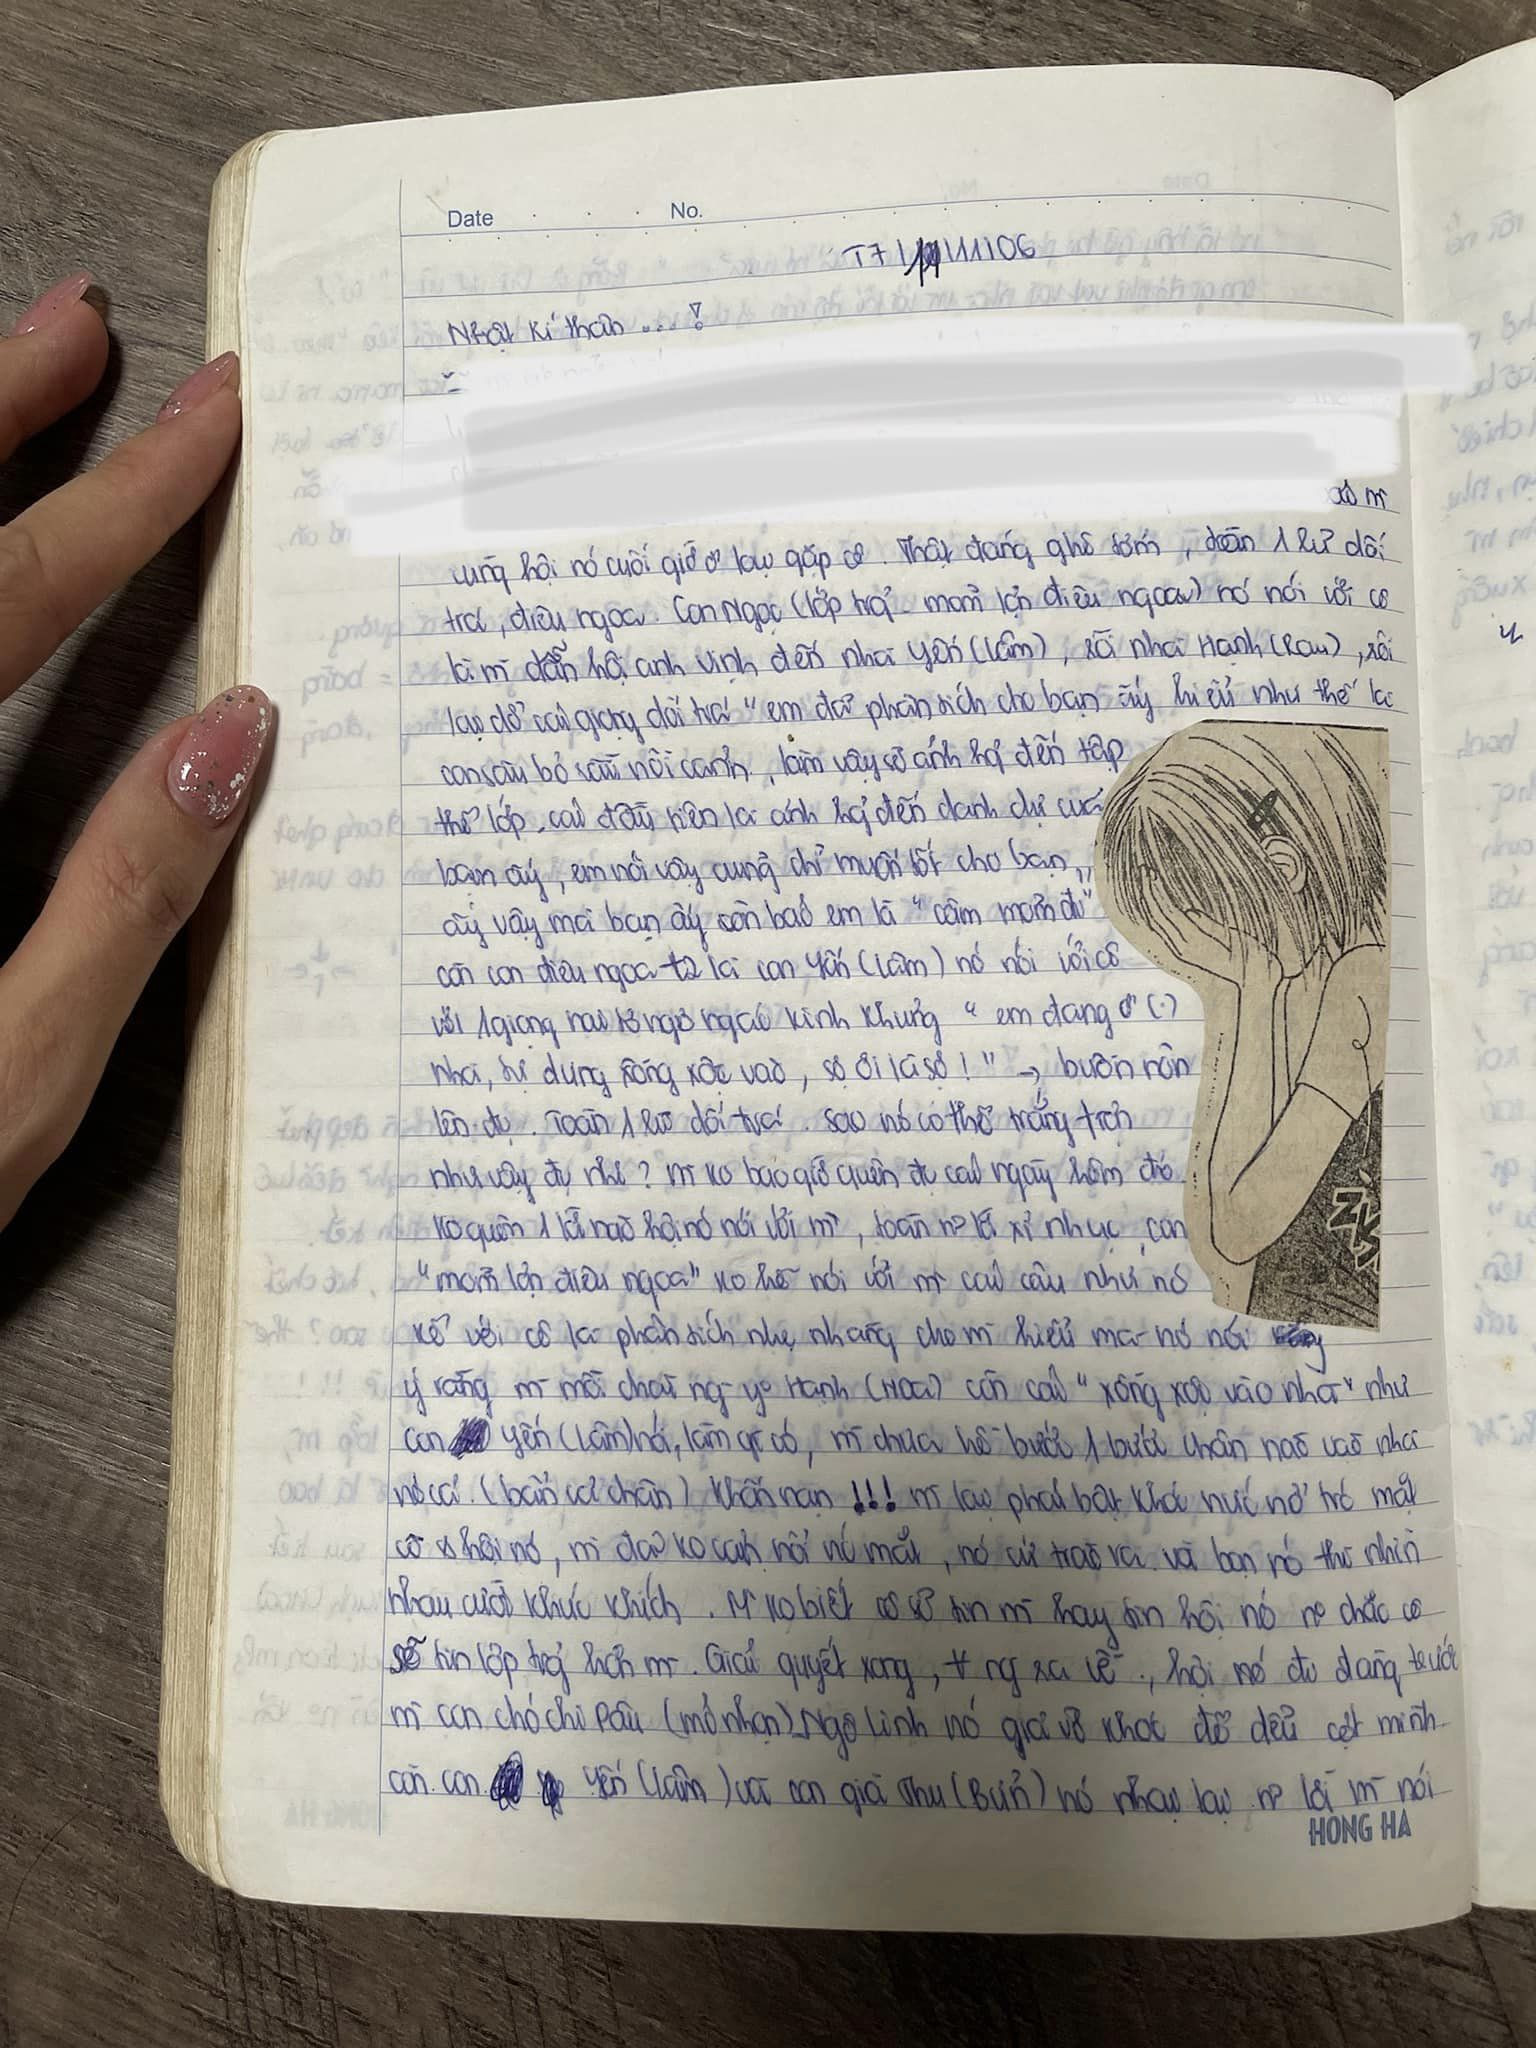 Date No.
T7 11/11/06
Nhật kí thân ... !
cùng hội nó cuối giờ ở lại gặp cô. Thật đáng ghê tởm, toàn 1 lũ dối
trá, điêu ngoa. Con Ngọc (lớp trg - mồm lợn điêu ngoa) nó nói với cô
là m dẫn hội anh Vinh đến nhà Yến (Lâm), rồi nhà Hạnh (Rau), rồi
lại dở cái giọng dối trá "em đã phân tích cho bạn ấy hiểu như thế là
con sâu bỏ rầu nồi canh, làm vậy sẽ ảnh hg đến tập
thể lớp, cái đầu tiên là ảnh hg đến danh dự của
bạn ấy, em nói vậy cũng chỉ muốn tốt cho bạn
ấy vậy mà bạn ấy còn bảo em là "câm mồm đi"
còn con điêu ngoa t2 là con Yến (Lâm) nó nói với cô
với 1 giọng nai tơ ngơ ngác kinh khủng "em đang ở (.)
nhà, tự dưng xông xộc vào, sợ ơi là sợ!" → buồn nôn
lên đc. Toàn 1 lũ dối trá. Sao nó có thể trắng trợn
như vậy đc nhỉ? M ko bao giờ quên đc cái ngày hôm đó
ko quên 1 lời nào hội nó nói với m, toàn n° lời sỉ nhục, con
"mồm lợn điêu ngoa" ko hề nói với m cái câu như nó
kể với cô là phân tích nhẹ nhàng cho m hiểu mà nó nói
ý rằng m mồi chài ng yo Hạnh (Hoa) còn cái "xông xộc vào nhà" như
con Yến (Lâm) nói, làm gì có, m chưa hề bước 1 bước chân nào vào nhà
nó cả. (bẩn cả chân) khốn nạn !!! m lại phải bật khóc nức nở trc mặt
cô & hội nó, m đã ko cầm nổi nc mắt, nó cứ trào ra. và bọn nó thì nhìn
nhau cười khúc khích. M ko biết cô sẽ tin m hay tin hội nó n° chắc cô
sẽ tin lớp trg hơn m. Giải quyết xong, t ng ra về, hội nó đi đằng trước
m con chó chi Pâu (mỏ nhọn) Ngọ Linh nó giả vờ khóc để đểu cợt mình
còn con Yến (Lâm) và con già Thu (Bủn) nó nhại lại n° lời m nói
HONG HA